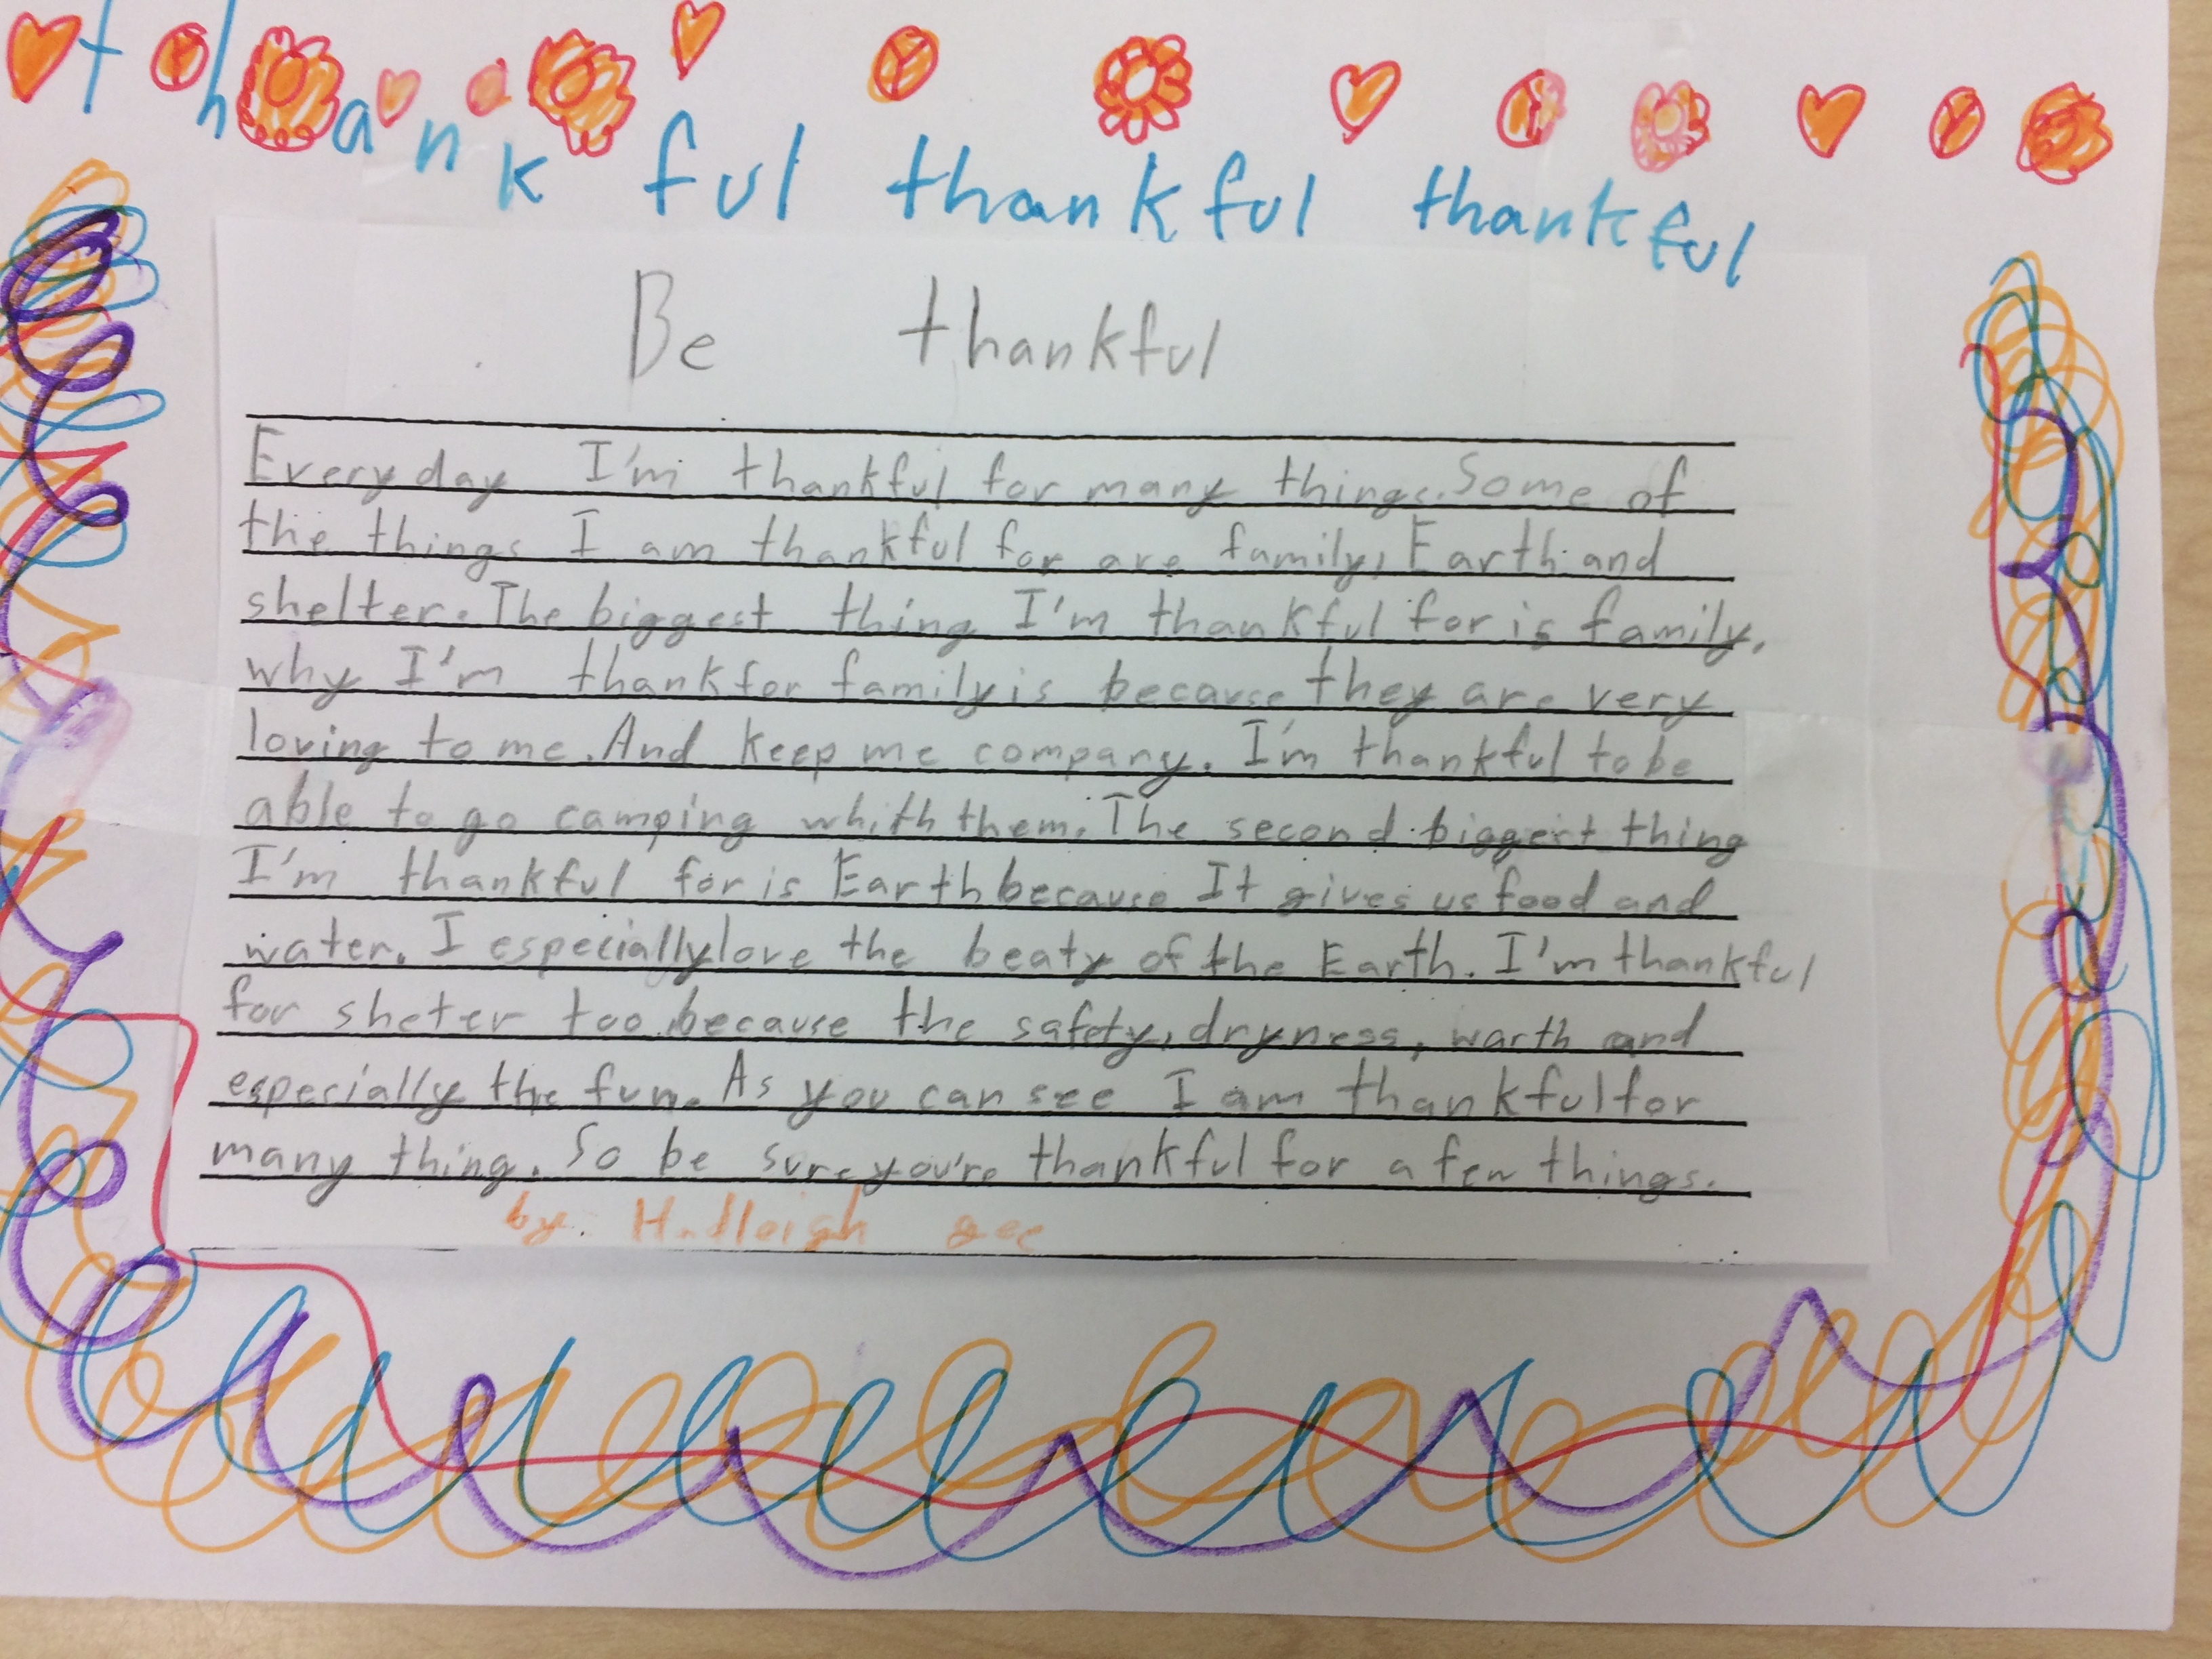 thankful thankful thankful
Be thankful
Everyday I'm thankful for many things. Some of
the things I am thankful for are family, Earth and
shelter. The biggest thing I'm thankful for is family,
why I'm thank for family is because they are very
loving to me. And keep me company. I'm thankful to be
able to go camping whith them. The second biggest thing
I'm thankful for is Earth because It gives us food and
water. I especially love the beaty of the Earth. I'm thankful
for sheter too because the safety, dryness, warth and
especially the fun. As you can see I am thankful for
many thing. So be sure you're thankful for a few things.
by: Hadleigh gee